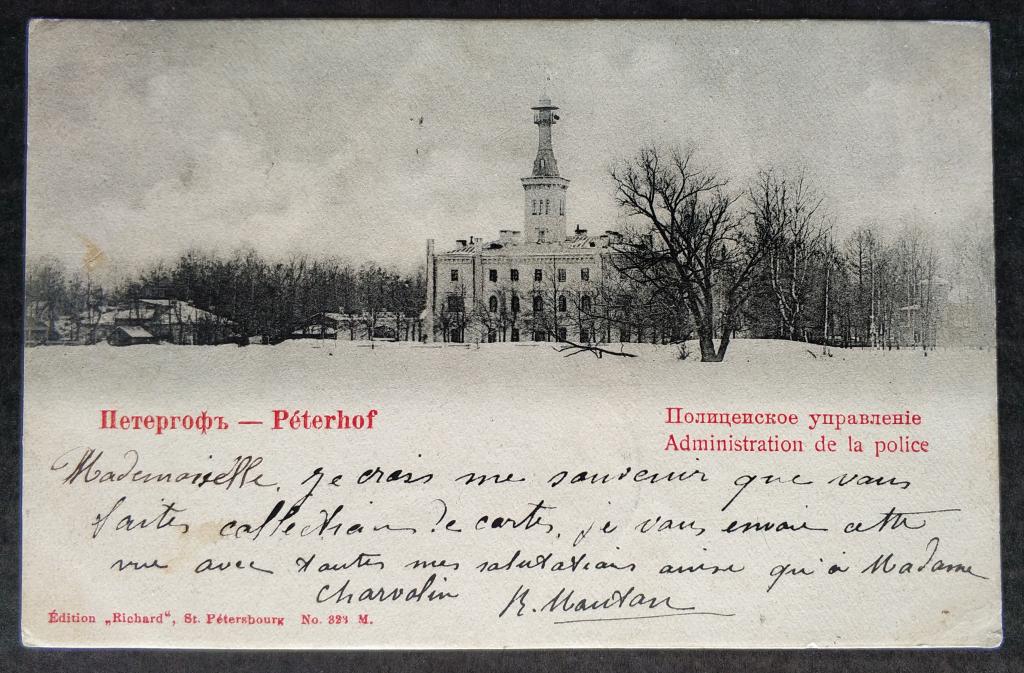 Петергофъ — Péterhof
Полицейское управленіе
Administration de la police
Mademoiselle, je crois me souvenir que vous
faites collection de cartes, je vous envoie cette
vue avec toutes mes salutations ainsi qu'à Madame
Charvolin
Édition „Richard“, St. Pétersbourg No. 323 M.